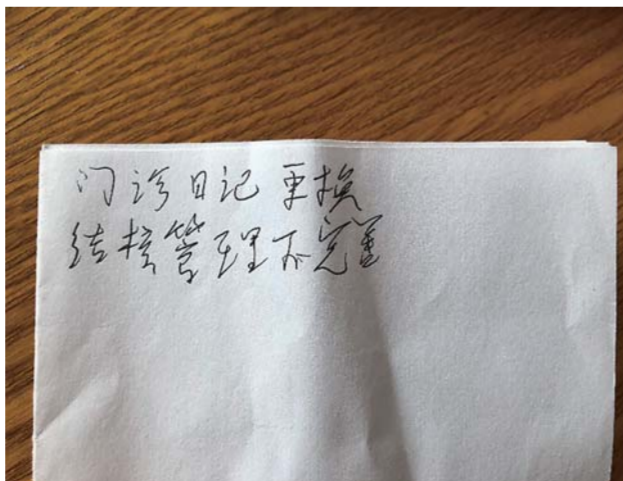 门诊日记 更换
结核管理不完善